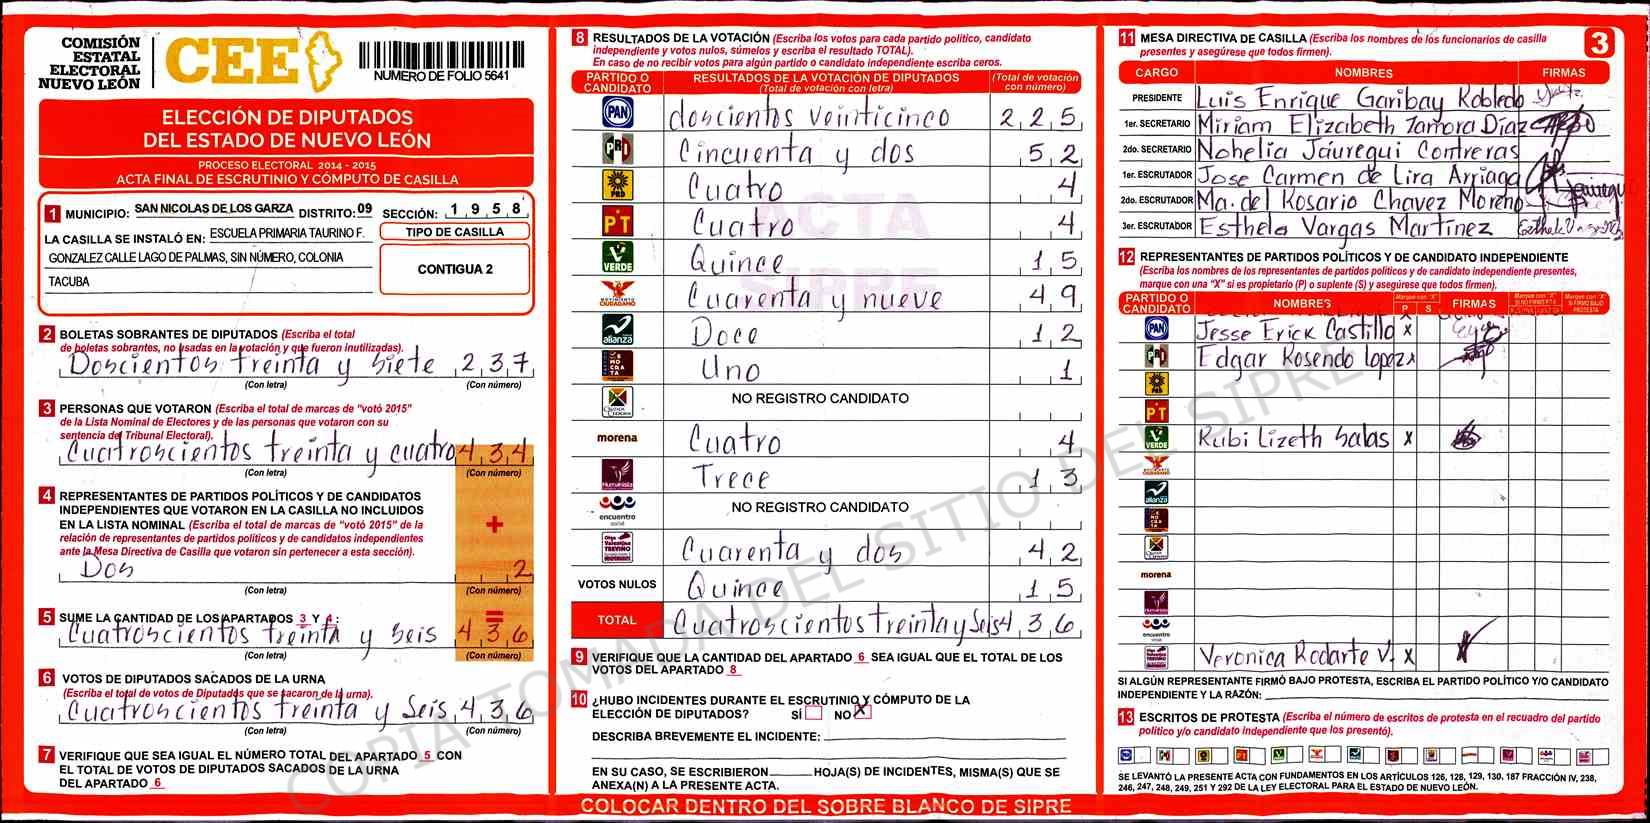 COMISIÓN
ESTATAL
ELECTORAL
NUEVO LEÓN
CEE
NUMERO DE FOLIO 5641
ELECCIÓN DE DIPUTADOS
DEL ESTADO DE NUEVO LEÓN
PROCESO ELECTORAL 2014 - 2015
ACTA FINAL DE ESCRUTINIO Y CÓMPUTO DE CASILLA
1 MUNICIPIO: SAN NICOLAS DE LOS GARZA DISTRITO: 09 SECCIÓN: 1 9 5 8
LA CASILLA SE INSTALÓ EN: ESCUELA PRIMARIA TAURINO F.
GONZALEZ CALLE LAGO DE PALMAS, SIN NÚMERO, COLONIA
TACUBA
TIPO DE CASILLA
CONTIGUA 2
2 BOLETAS SOBRANTES DE DIPUTADOS (Escriba el total
de boletas sobrantes, no usadas en la votación y que fueron inutilizadas).
Doscientos treinta y siete 2 3 7
(Con letra) (Con número)
3 PERSONAS QUE VOTARON (Escriba el total de marcas de "votó 2015"
de la Lista Nominal de Electores y de las personas que votaron con su
sentencia del Tribunal Electoral).
Cuatroscientos treinta y cuatro 4 3 4
(Con letra) (Con número)
4 REPRESENTANTES DE PARTIDOS POLÍTICOS Y DE CANDIDATOS
INDEPENDIENTES QUE VOTARON EN LA CASILLA NO INCLUIDOS
EN LA LISTA NOMINAL (Escriba el total de marcas de "votó 2015" de la
relación de representantes de partidos políticos y de candidatos independientes
ante la Mesa Directiva de Casilla que votaron sin pertenecer a esta sección).
+
Dos 2
(Con letra) (Con número)
5 SUME LA CANTIDAD DE LOS APARTADOS 3 Y 4 : =
Cuatroscientos treinta y seis 4 3 6
(Con letra) (Con número)
6 VOTOS DE DIPUTADOS SACADOS DE LA URNA
(Escriba el total de votos de Diputados que se sacaron de la urna).
Cuatroscientos treinta y Seis 4 3 6
(Con letra) (Con número)
7 VERIFIQUE QUE SEA IGUAL EL NÚMERO TOTAL DEL APARTADO 5 CON
EL TOTAL DE VOTOS DE DIPUTADOS SACADOS DE LA URNA
DEL APARTADO 6
8 RESULTADOS DE LA VOTACIÓN (Escriba los votos para cada partido político, candidato
independiente y votos nulos, súmelos y escriba el resultado TOTAL).
En caso de no recibir votos para algún partido o candidato independiente escriba ceros.
PARTIDO O CANDIDATO RESULTADOS DE LA VOTACIÓN DE DIPUTADOS (Total de votación con letra) (Total de votación con número)
PAN doscientos veinticinco 2 2 5
PRI Cincuenta y dos 5 2
PRD Cuatro 4
PT Cuatro 4
VERDE Quince 1 5
MOVIMIENTO CIUDADANO Cuarenta y nueve 4 9
alianza Doce 1 2
DEMOCRATA Uno 1
CRUZADA CIUDADANA NO REGISTRO CANDIDATO
morena Cuatro 4
Humanista Trece 1 3
encuentro social NO REGISTRO CANDIDATO
Olga Valentina TREVIÑO Cuarenta y dos 4 2
VOTOS NULOS Quince 1 5
TOTAL Cuatroscientos treinta y Seis 4 3 6
ACTA
SIPRE
9 VERIFIQUE QUE LA CANTIDAD DEL APARTADO 6 SEA IGUAL QUE EL TOTAL DE LOS
VOTOS DEL APARTADO 8
10 ¿HUBO INCIDENTES DURANTE EL ESCRUTINIO Y CÓMPUTO DE LA
ELECCIÓN DE DIPUTADOS? SÍ NO X
DESCRIBA BREVEMENTE EL INCIDENTE:
EN SU CASO, SE ESCRIBIERON HOJA(S) DE INCIDENTES, MISMA(S) QUE SE
ANEXA(N) A LA PRESENTE ACTA.
COLOCAR DENTRO DEL SOBRE BLANCO DE SIPRE
11 MESA DIRECTIVA DE CASILLA (Escriba los nombres de los funcionarios de casilla
presentes y asegúrese que todos firmen).
3
CARGO NOMBRES FIRMAS
PRESIDENTE Luis Enrique Garibay Robledo
1er. SECRETARIO Miriam Elizabeth Zamora Díaz
2do. SECRETARIO Nohelia Jáuregui Contreras
1er. ESCRUTADOR Jose Carmen de Lira Arriaga
2do. ESCRUTADOR Ma. del Rosario Chavez Moreno
3er. ESCRUTADOR Esthela Vargas Martínez
12 REPRESENTANTES DE PARTIDOS POLÍTICOS Y DE CANDIDATO INDEPENDIENTE
(Escriba los nombres de los representantes de partidos políticos y de candidato independiente presentes,
marque con una "X" si es propietario (P) o suplente (S) y asegúrese que todos firmen).
PARTIDO O CANDIDATO NOMBRES Marque con "X" P S FIRMAS
PAN Jesse Erick Castillo x
PRI Edgar Rosendo lopez x
PRD
PT
VERDE Rubi Lizeth Salas x
alianza
morena
encuentro social
Veronica Rodarte V. x
SI ALGÚN REPRESENTANTE FIRMÓ BAJO PROTESTA, ESCRIBA EL PARTIDO POLÍTICO Y/O CANDIDATO
INDEPENDIENTE Y LA RAZÓN:
13 ESCRITOS DE PROTESTA (Escriba el número de escritos de protesta en el recuadro del partido
político y/o candidato independiente que los presentó).
SE LEVANTÓ LA PRESENTE ACTA CON FUNDAMENTOS EN LOS ARTÍCULOS 126, 128, 129, 130, 187 FRACCIÓN IV, 238,
246, 247, 248, 249, 251 Y 292 DE LA LEY ELECTORAL PARA EL ESTADO DE NUEVO LEÓN.
COPIA TOMADA DEL SITIO DEL SIPRE